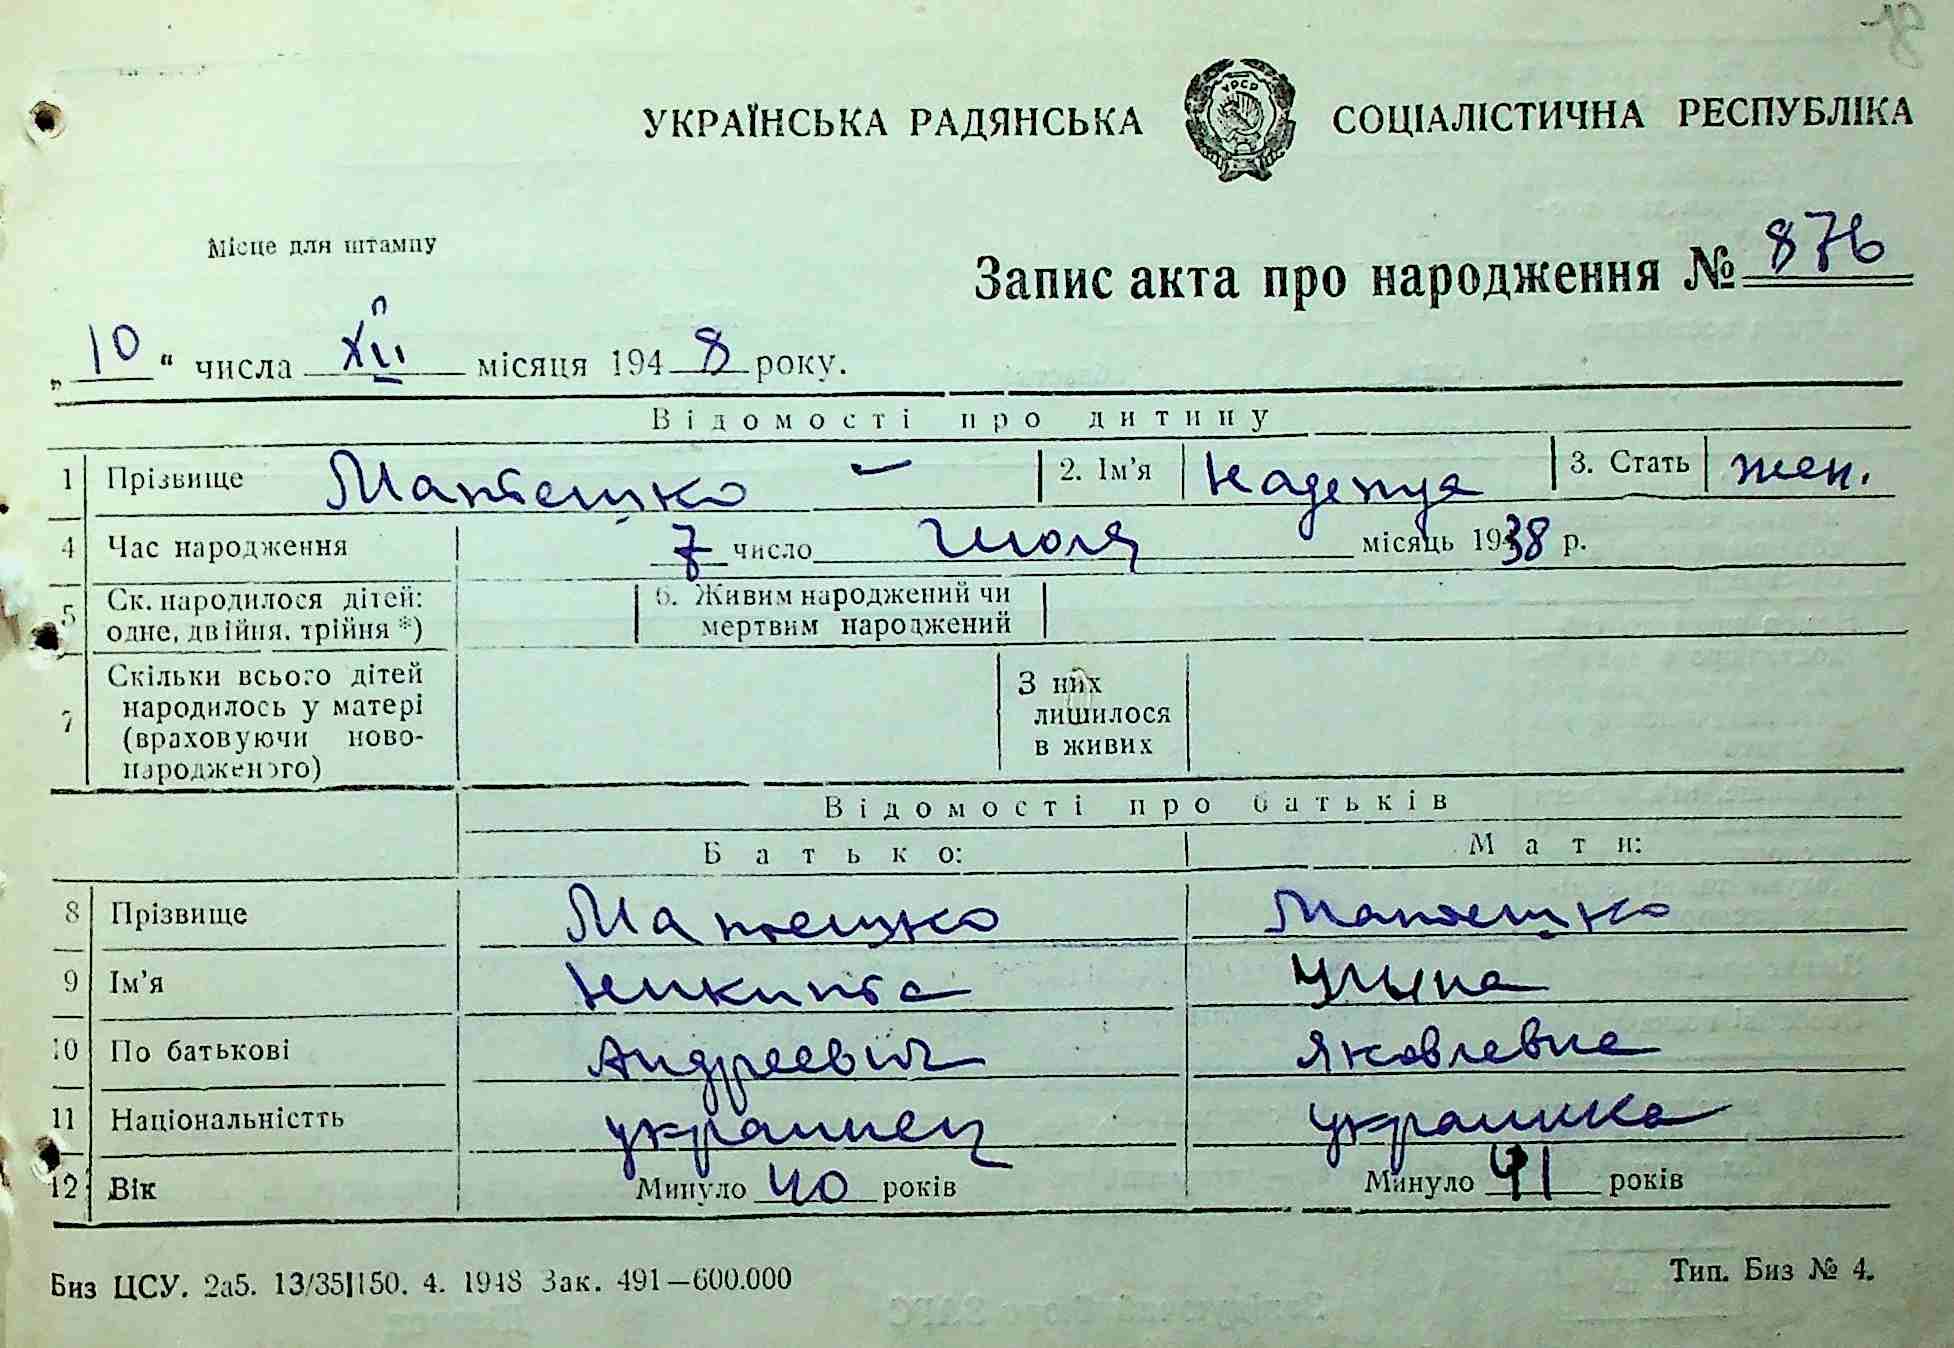 УКРАЇНСЬКА РАДЯНСЬКА СОЦІАЛІСТИЧНА РЕСПУБЛІКА
УРСР
Місце для штампу
Запис акта про народження № 876
„ 10 “ числа XII місяця 1948 року.
Відомості про дитину
1 Прізвище Мантешко 2. Ім’я Надежда 3. Стать жен.
4 Час народження 7 число Июля місяць 1938 р.
5 Ск. народилося дітей: одне, двійня, трійня *) 6. Живим народжений чи мертвим народжений
7 Скільки всього дітей народилось у матері (враховуючи новонародженого) З них лишилося в живих
Відомості про батьків
Батько: Мати:
8 Прізвище
9 Ім’я Никита Ульяна
10 По батькові Андреевич Яковлевна
11 Національністть украинец украинка
12 Вік Минуло 40 років Минуло 41 років
Биз ЦСУ. 2а5. 13/35|150. 4. 1948 Зак. 491—600.000 Тип. Биз № 4.